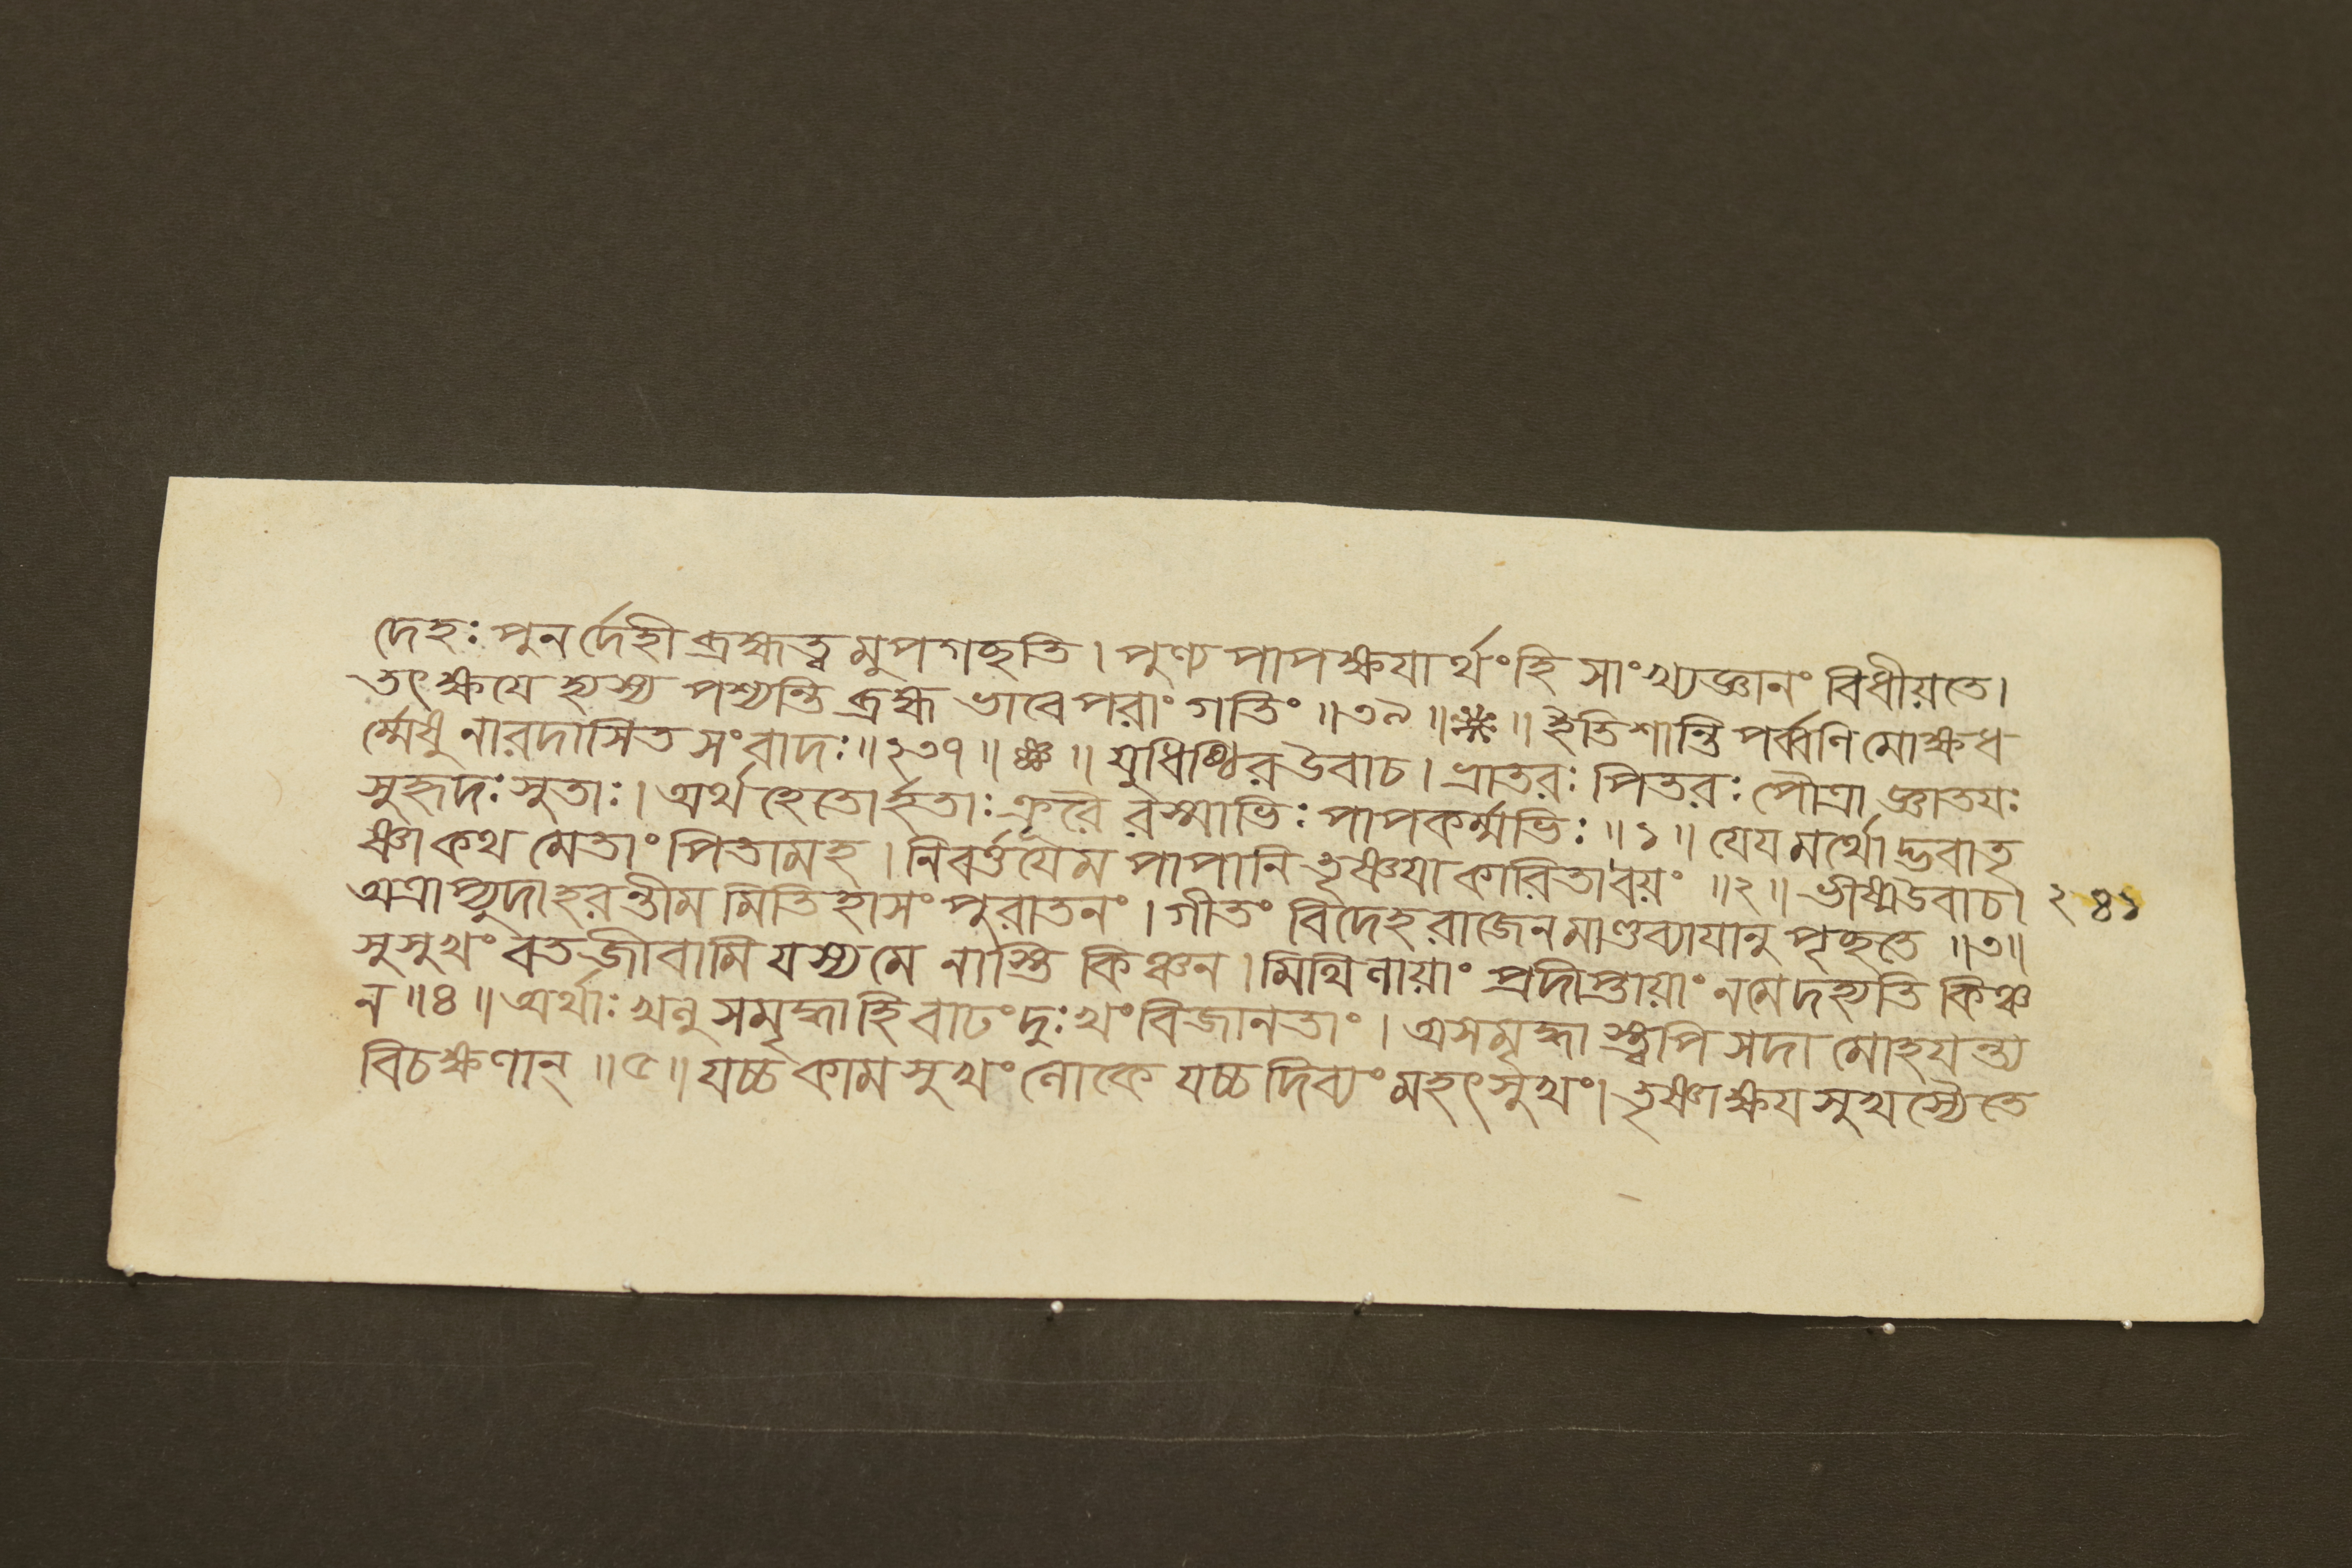 দেহঃ পুনর্দেহী ব্রহ্মত্বমুপগচ্ছতি। পুণ্যপাপক্ষযার্থংহি সাংখ্যজ্ঞানং বিধীয়তে।
তৎক্ষযে হ্যস্য পশ্যন্তি ব্রহ্ম ভাবেপরাং গতিং ॥৩৯॥❋॥ ইতিশান্তিপর্ব্বণিমোক্ষধ
র্ম্মেষু নারদাসিত সংবাদঃ॥২৩৭॥ ❋ ॥ যুধিষ্ঠিরউবাচ। ভ্রাতরঃ পিতরঃ পৌত্রা জ্ঞাতযঃ
সুহৃদঃ সুতাঃ। অর্থহেতোর্হতাঃ ক্রূরৈ রস্মাভিঃ পাপকর্ম্মভিঃ॥১॥ যেযমর্থোদ্ভবাতৃ
ষ্ণাকথমেতাং পিতামহ। নিবর্ত্তযেম পাপানিতৃষ্ণযাকারিতাবয়ং ॥২॥ ভীষ্মউবাচ। ২৪১
অত্রাপ্যুদাহরন্তীমমিতিহাসং পুরাতনং। গীতং বিদেহরাজেনমাণ্ডব্যাযানুপৃচ্ছতে ॥৩॥
সুসুখং বতজীবামি যস্যমে নাস্তি কিঞ্চন। মিথিলায়াং প্রদীপ্তায়াং নমেদহ্যতি কিঞ্চ
ন॥৪॥ অর্থাঃ খলু সমৃদ্ধাহি বাঢংদুঃখংবিজানতাং। অসমৃদ্ধা স্ত্বপি সদা মোহযন্ত্য
বিচক্ষণান্ ॥৫॥ যচ্চকামসুখংলোকে যচ্চদিব্যংমহৎসুখং। তৃষ্ণাক্ষযসুখস্যৈতে